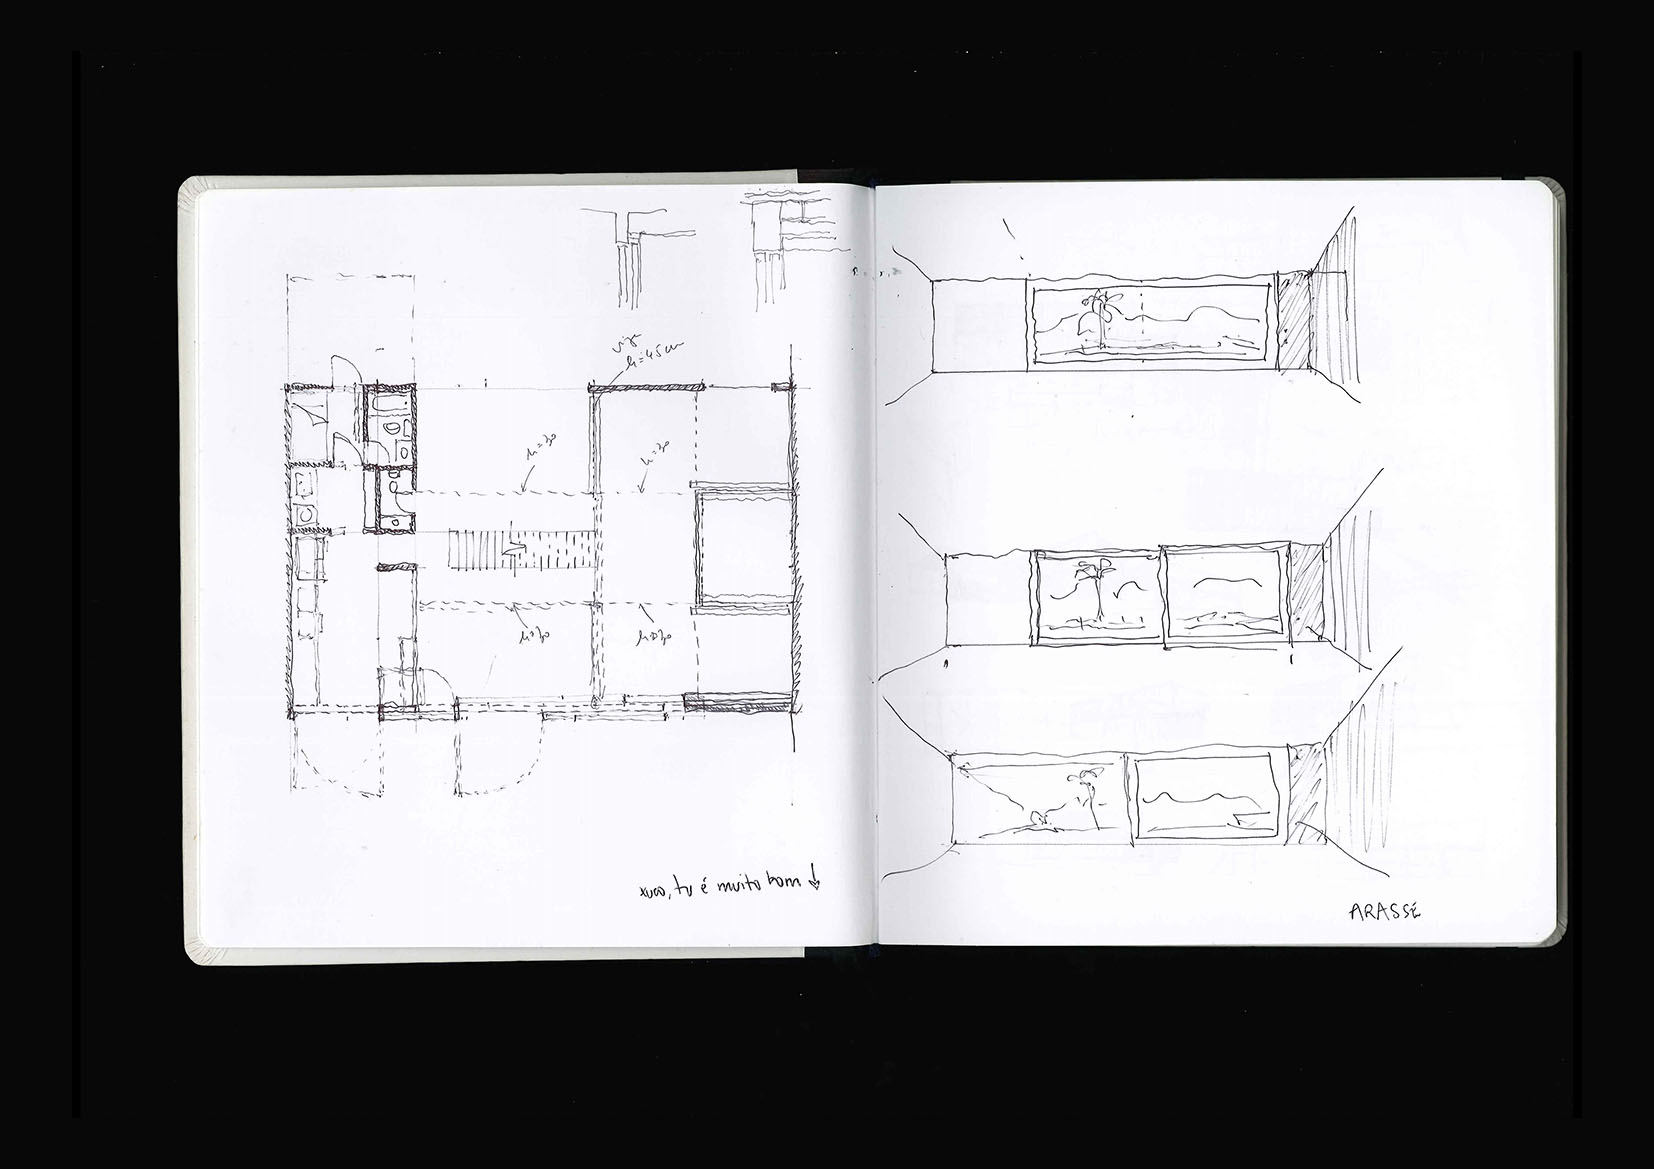 viga
h=45cm
h=30
h=30
h=30
h=30
xuxo, tu é muito bom
ARASSÉ